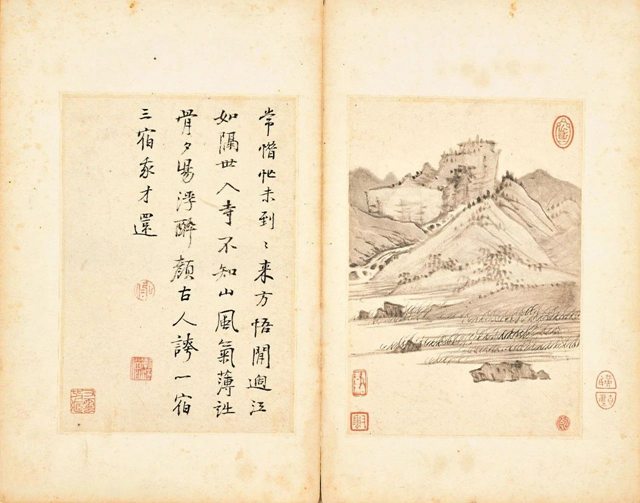 常惜忙未到〻來方悟閒過江
如隔世入寺不知山風氣薄詩
骨夕陽浮醉顏古人誇一宿
三宿我才還